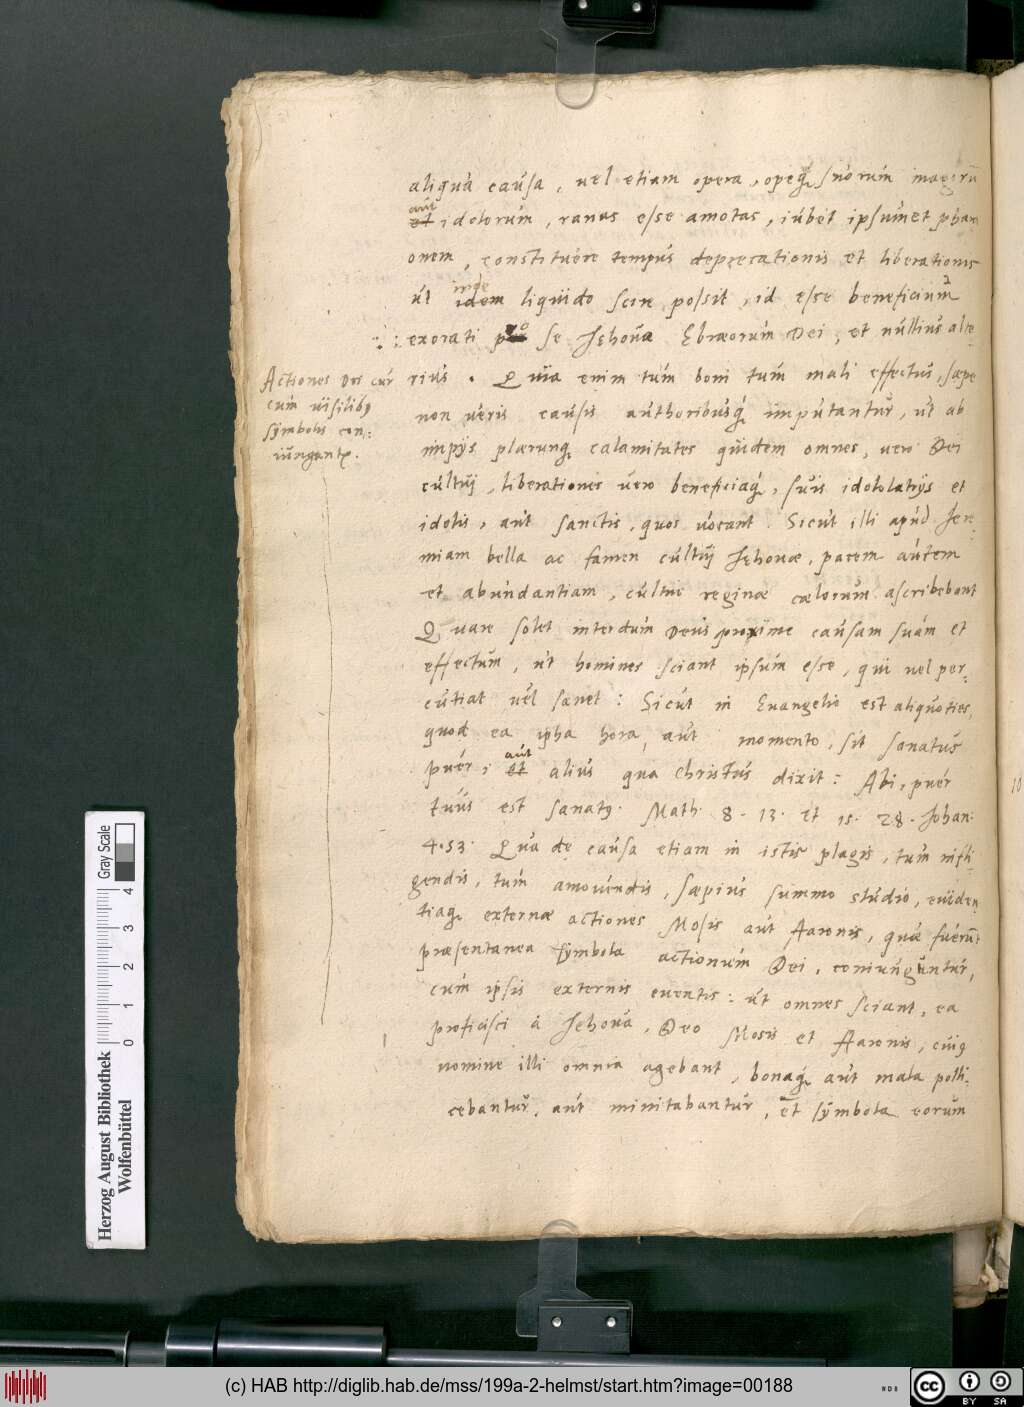 aliqua causa, vel etiam opera, opeq́; suorum magorū
aut
et idolorum, ranas esse amotas, iubet ipsumet phara
onem, constituere tempus deprecationis et liberationis
inde
ut idem liquido scire possit, id esse beneficium
exorati pro se Jehoua Ebræorum Dei, et nullius alte
rius. Quia enim tum boni tum mali effectus, sæpe
non ueris causis authoribusq́; imputantur, ut ab
impijs plærunq; calamitates quidem omnes, uero Dei
cultuj, liberationes uero beneficiaq́;, suis idololatrijs et
idolis, aut sanctis, quos uocant. Sicut illi apud Jere
miam bella ac famen cultuj Jehouæ, pacem autem
et abundantiam, cultui reginæ cælorum ascribebant
Quare solet interdum Deus proxime causam suam et
effectum, ut homines sciant ipsum esse, qui uel per-
cutiat uel sanet: Sicut in Euangelio est aliquoties,
quod ea ipsa hora, aut momento, sit sanatus
aut
puer, et alius qua Christus dixit: Abi, puer
tuus est sanatꝰ. Math. 8. 13. Et 15. 28. Johan.
4. 53. Qua de causa etiam in istis plagis, tum infli
gendis, tum amouendis, sæpius summo studio, euiden
tiaq; externæ actiones Mosis aut Aaronis, quæ fuerūt
præsentanea symbola actionum Dei, coniunguntur,
cum ipsis externis euentis: ut omnes sciant, ea
proficisci à Jehoua, Deo Mosis et Aaronis, cuiꝰ
nomine illi omnia agebant, bonaq́; aut mala polli-
cebantur, aut minitabantur, et symbola eorum
Actiones Dei cur
cum uisilibꝰ
symbolis con-
iungantr.
10
Herzog August Bibliothek
Wolfenbüttel
0 1 2 3 4
Gray Scale
(c) HAB http://diglib.hab.de/mss/199a-2-helmst/start.htm?image=00188
cc BY SA